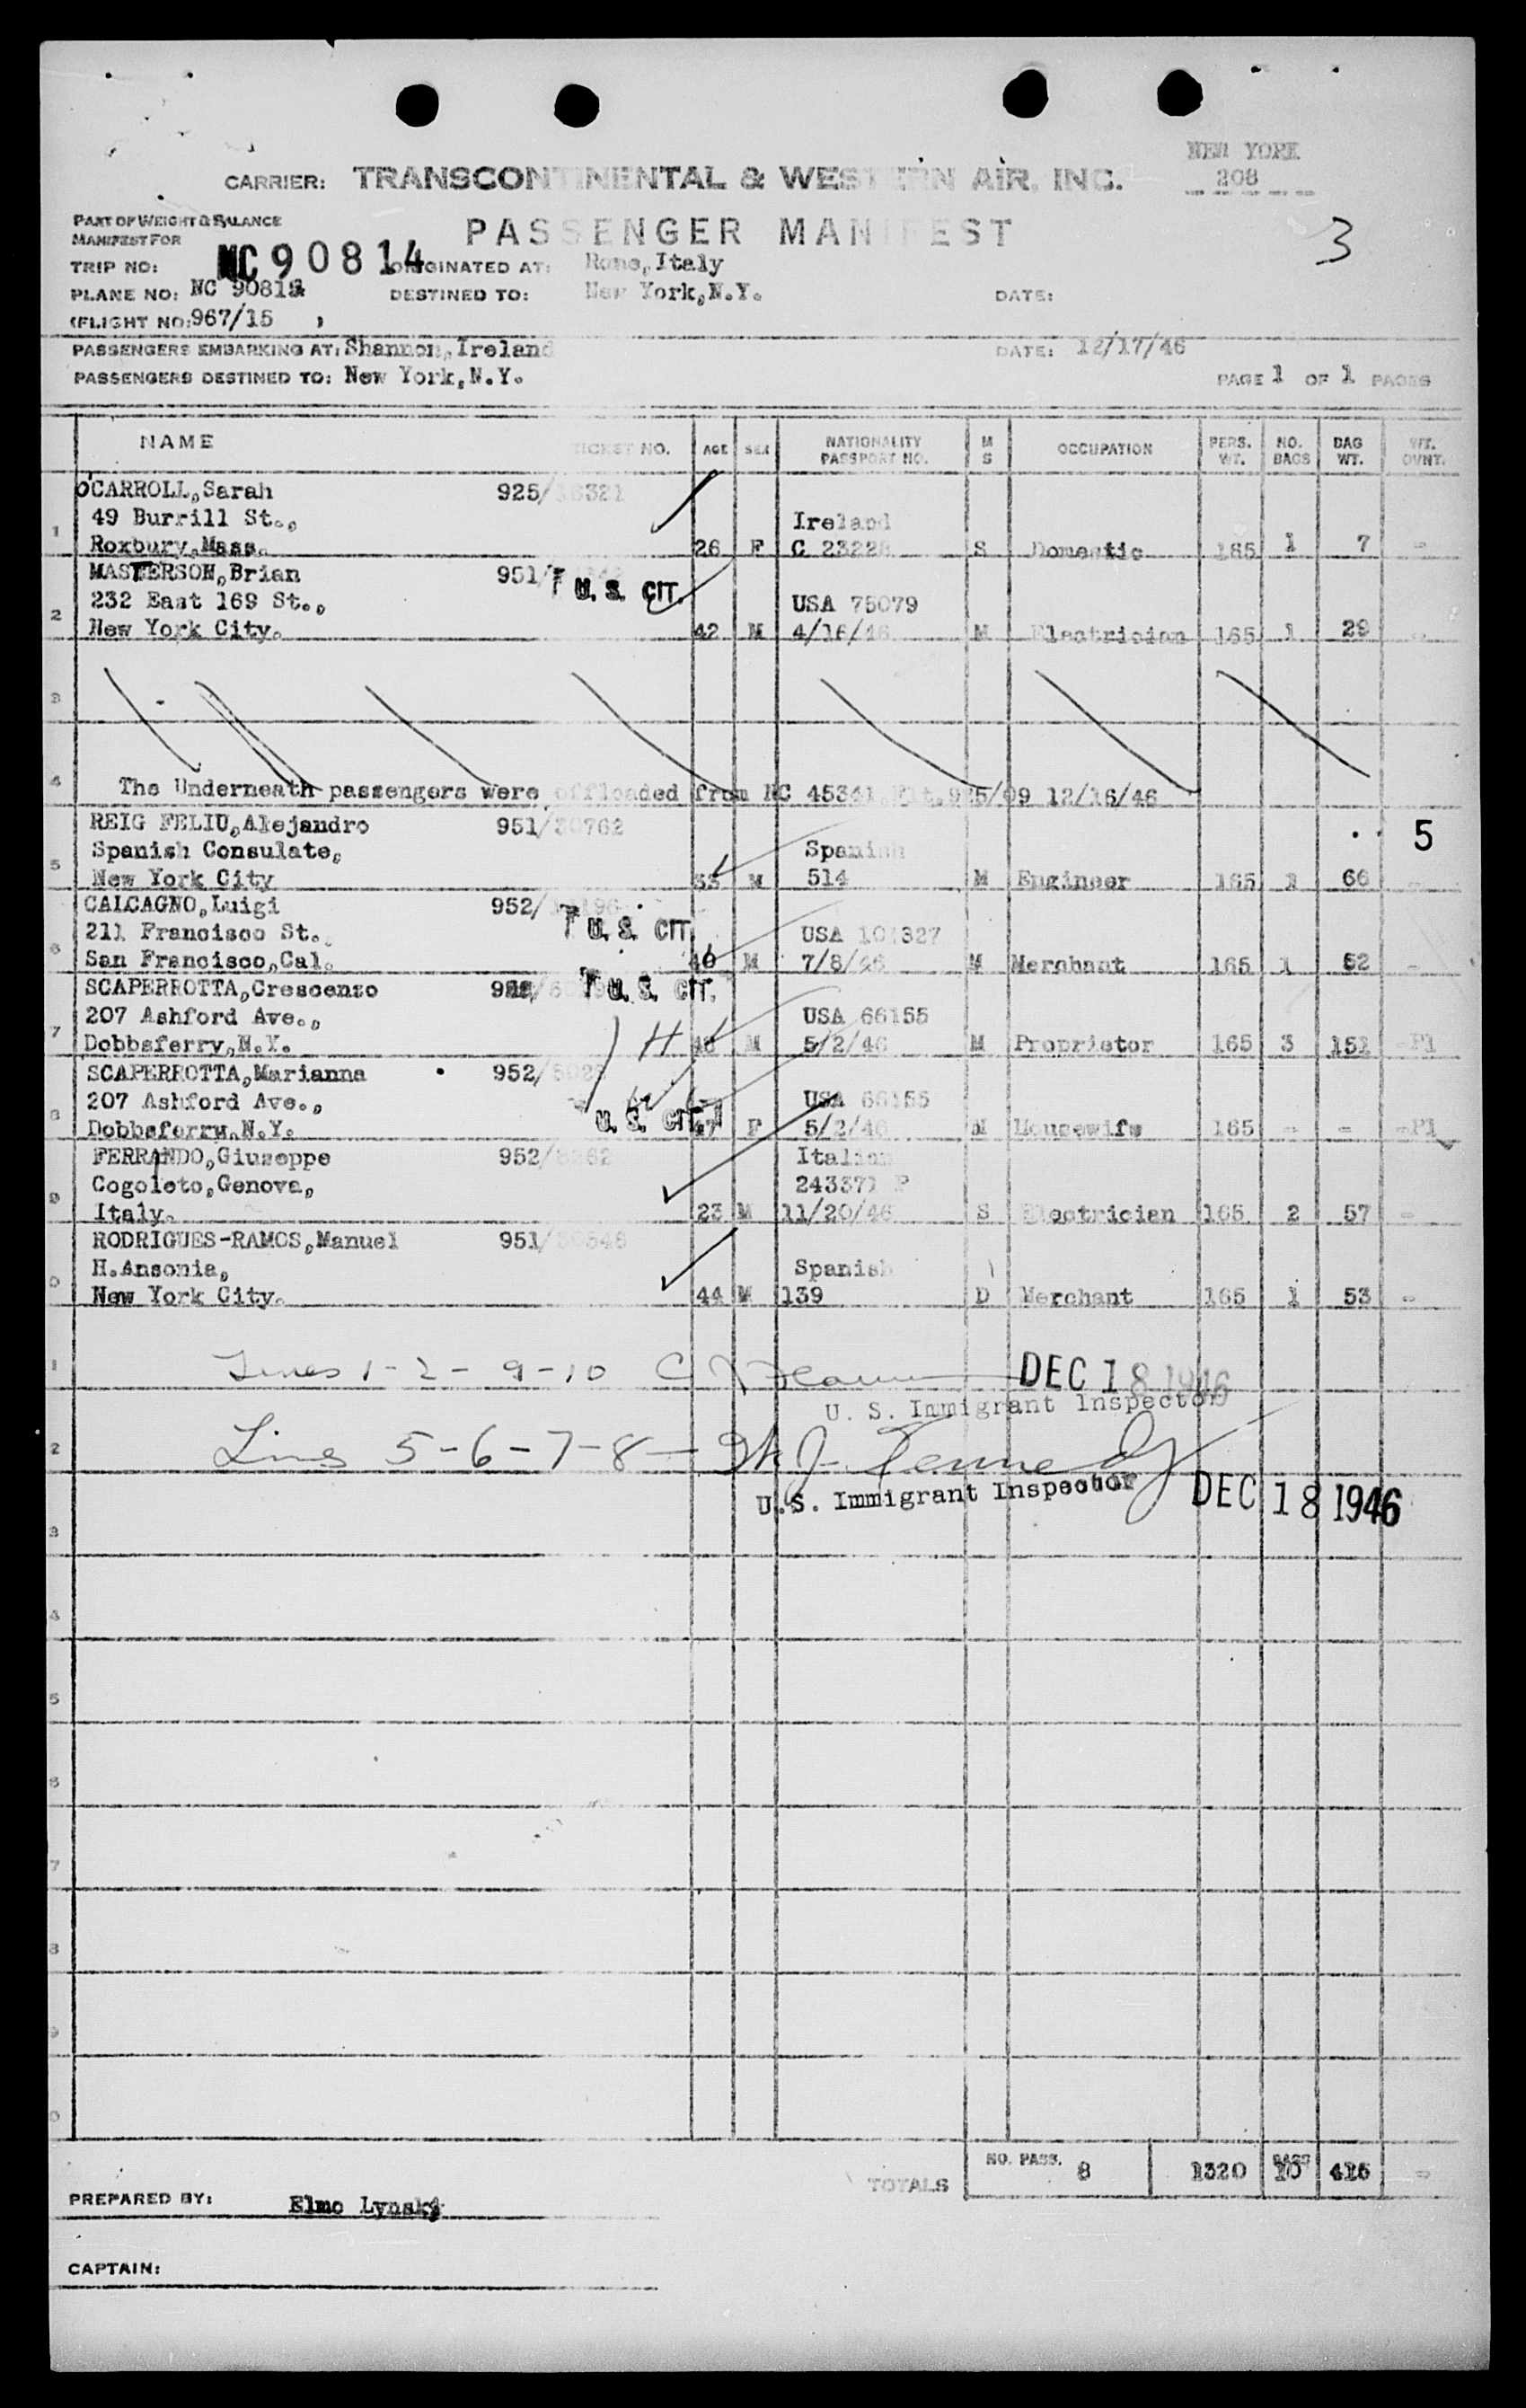 NEW YORK
208
CARRIER: TRANSCONTINENTAL & WESTERN AIR, INC.
PART OF WEIGHT & BALANCE
MANIFEST FOR
PASSENGER MANIFEST
3
TRIP NO: NC90814 ORIGINATED AT: Rome, Italy
PLANE NO: NC 90814 DESTINED TO: New York, N.Y. DATE:
(FLIGHT NO: 967/15 )
PASSENGERS EMBARKING AT: Shannon, Ireland DATE: 12/17/46
PASSENGERS DESTINED TO: New York, N.Y. PAGE 1 OF 1 PAGES
NAME TICKET NO. AGE SEX NATIONALITY PASSPORT NO. M S OCCUPATION PERS. WT. NO. BAGS BAG WT. WT. OVNT.
O'CARROLL, Sarah 925/16321
49 Burrill St., Ireland
1 Roxbury, Mass. 26 F C 23228 S Domestic 165 1 7 -
MASTERSON, Brian 951/ U. S. CIT.
232 East 169 St., USA 75079
2 New York City. 42 M 4/16/46 M Electrician 165 1 29 -
3
4 The Underneath passengers were offloaded from NC 45341, Flt. 925/09 12/16/46
REIG FELIU, Alejandro 951/30762 5
Spanish Consulate, Spanish
5 New York City 33 M 514 M Engineer 165 1 66 -
CALCAGNO, Luigi 952/ U. S. CIT.
211 Francisco St. USA 101327
6 San Francisco, Cal. 40 M 7/8/46 M Merchant 165 1 52 -
SCAPERROTTA, Crescenzo U. S. CIT.
207 Ashford Ave., USA 66155
7 Dobbsferry, N.Y. H 48 M 5/2/46 M Proprietor 165 3 151 -Pl
SCAPERROTTA, Marianna 952/
207 Ashford Ave., U. S. CIT. USA 66155
8 Dobbsferry, N.Y. 47 F 5/2/46 M Housewife 165 - - -Pl
FERRANDO, Giuseppe 952/ Italian
Cogoleto, Genova, 243371 P
9 Italy. 23 M 11/20/46 S Electrician 165 2 57 -
RODRIGUES-RAMOS, Manuel 951/
H. Ansonia, Spanish
0 New York City. 44 M 139 D Merchant 165 1 53 -
1 Lines 1-2-9-10 DEC 18 1946
U. S. Immigrant Inspector
2 Lines 5-6-7-8- Kennedy
U.S. Immigrant Inspector DEC 18 1946
3
4
5
6
7
8
9
0
TOTALS NO. PASS. 8 1320 BAGS 10 415 -
PREPARED BY: Elmo Lynskj
CAPTAIN: